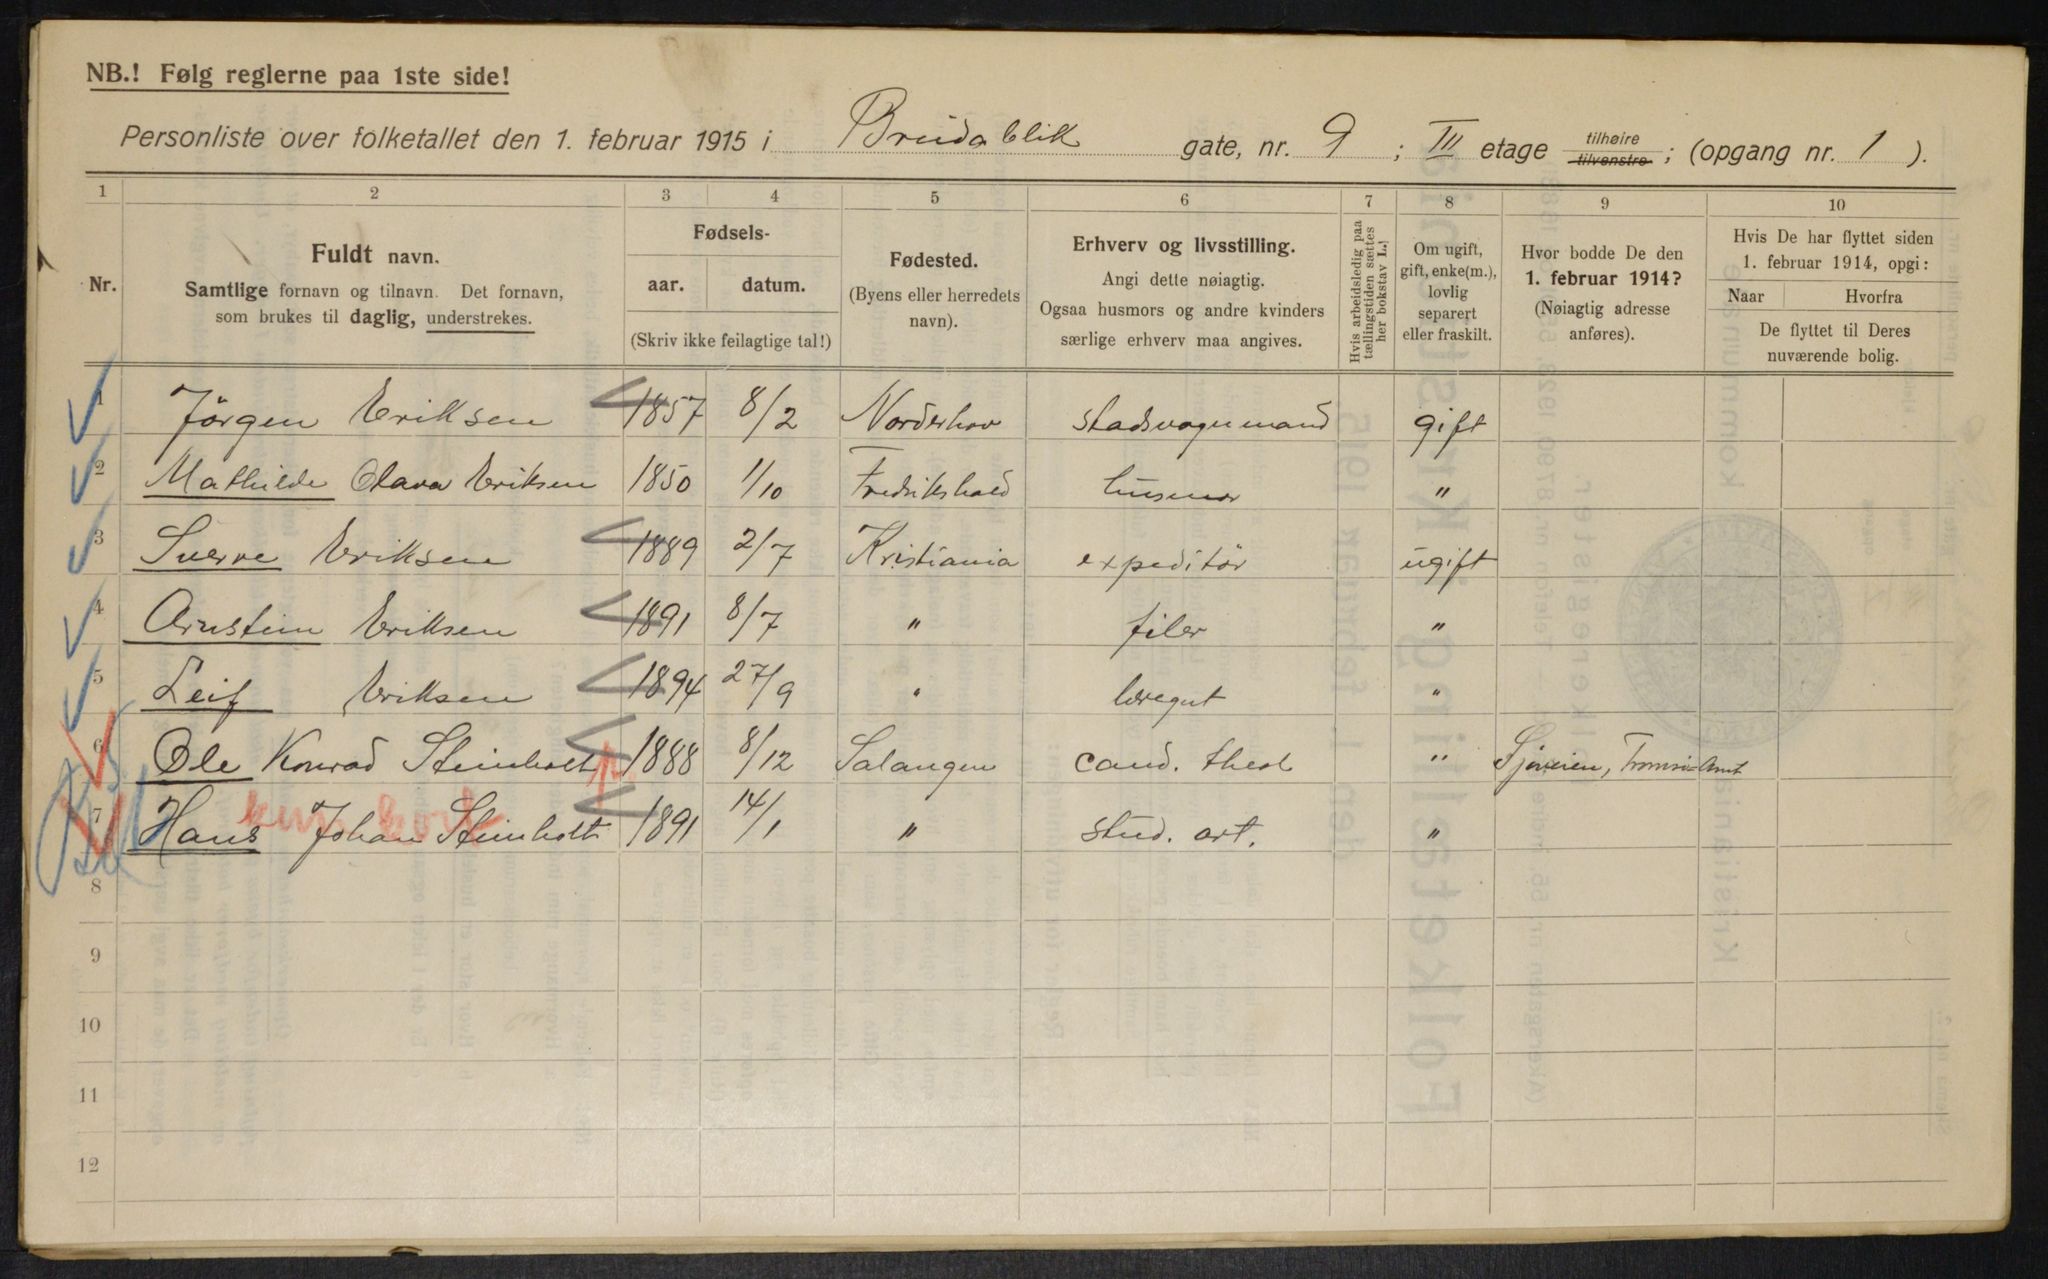 NB.! Følg reglerne paa 1ste side!
Personliste over folketallet den 1. februar 1915 i Breidablik gate, nr. 9 ; III etage tilhøire tilvenstre ; (opgang nr. 1 ).
1 2 3 4 5 6 7 8 9 10
Nr.
Fuldt navn.
Samtlige fornavn og tilnavn. Det fornavn,
som brukes til daglig, understrekes.
Fødsels-
aar. datum.
(Skriv ikke feilagtige tal!)
Fødested.
(Byens eller herredets
navn).
Erhverv og livsstilling.
Angi dette nøiagtig.
Ogsaa husmors og andre kvinders
særlige erhverv maa angives.
Hvis arbeidsledig paa
tællingstiden sættes
her bokstav L.!
Om ugift,
gift, enke(m.),
lovlig
separert
eller fraskilt.
Hvor bodde De den
1. februar 1914?
(Nøiagtig adresse
anføres).
Hvis De har flyttet siden
1. februar 1914, opgi:
Naar Hvorfra
De flyttet til Deres
nuværende bolig.
1 Jörgen Eriksen 1857 8/2 Norderhov stadsvognmand gift
2 Mathilde Olava Eriksen 1850 1/10 Fredrikshald husmor "
3 Sverre Eriksen 1889 2/7 Kristiania expeditör ugift
4 Arnstein Eriksen 1891 8/7 " filer "
5 Leif Eriksen 1894 27/9 " læregut "
6 Ole Konrad Steinholt 1888 8/12 Salangen cand. theol "  Tromsö Amt
7 Hans Johan Steinholt 1891 14/1 " stud. art. "
8
9
10
11
12